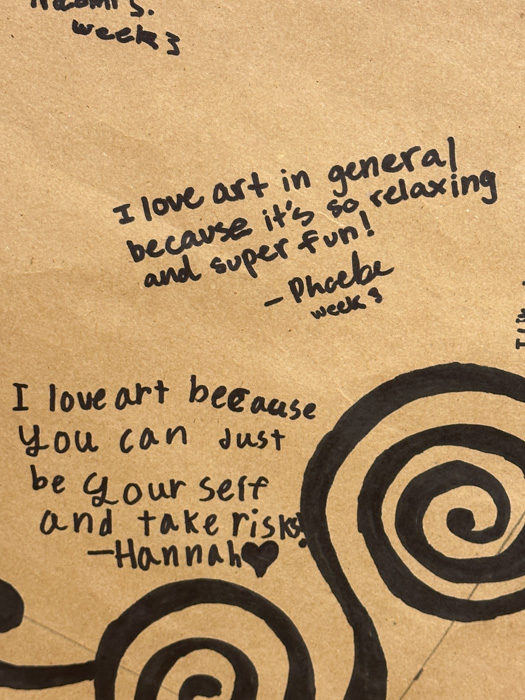 Naomi S.
week 3
I love art in general
because it's so relaxing
and super fun!
- Phoebe
week 3
I love art because
you can Just
be your self
and take risks!
-Hannah♥